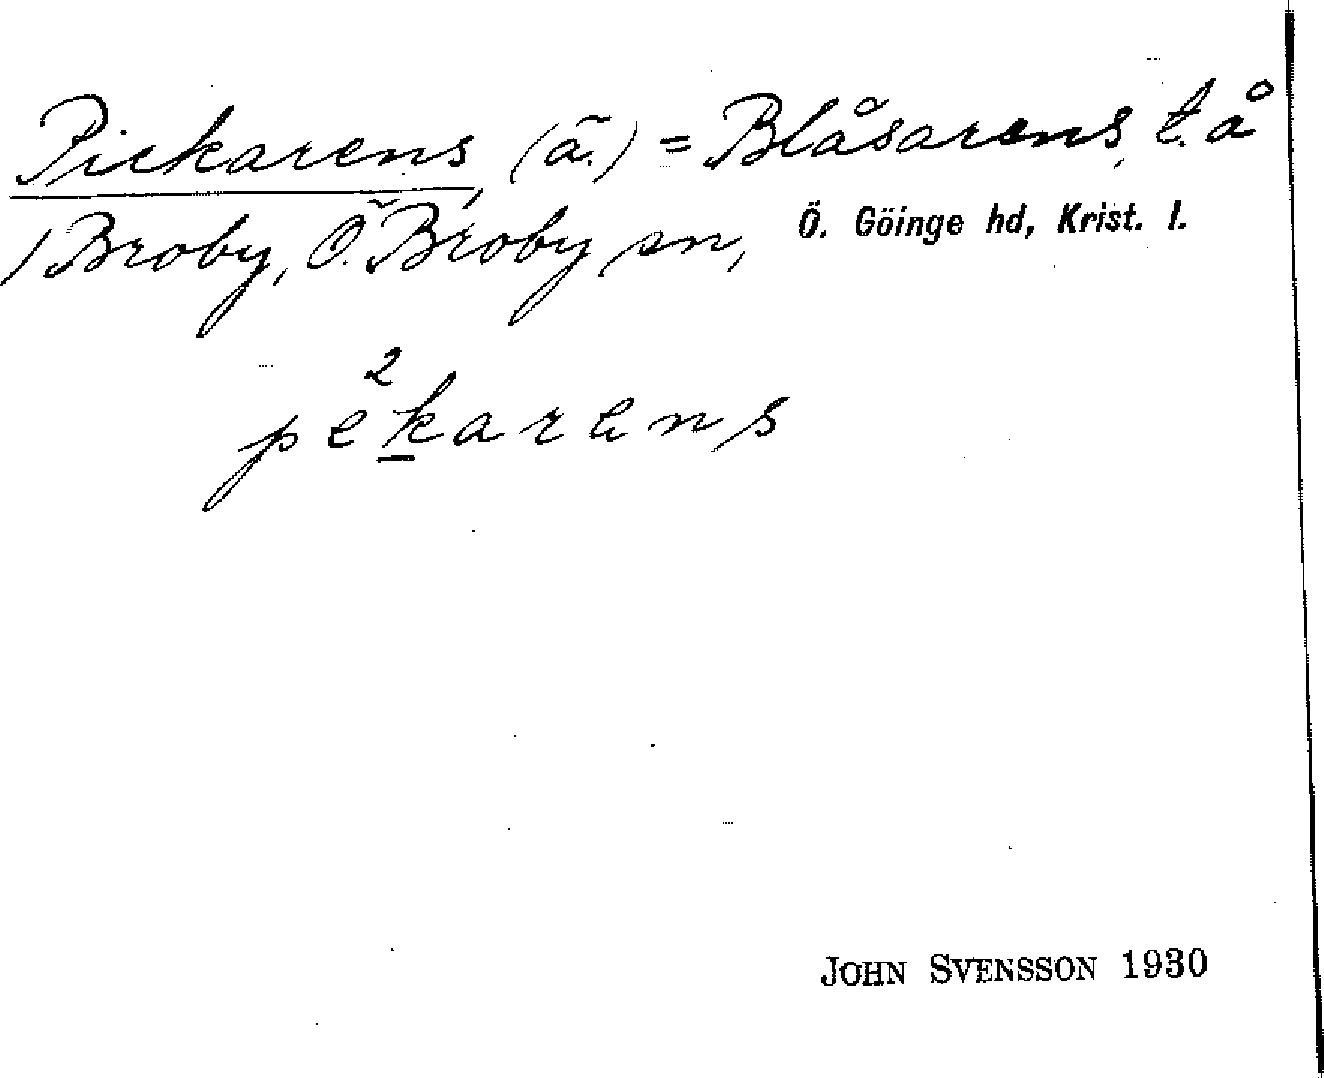 Pickarens, (ä.) = Blåsarens, t. å
1 Broby, Ö. Broby sn, Ö. Göinge hd, Krist. l.
pe²karens
JOHN SVENSSON 1930